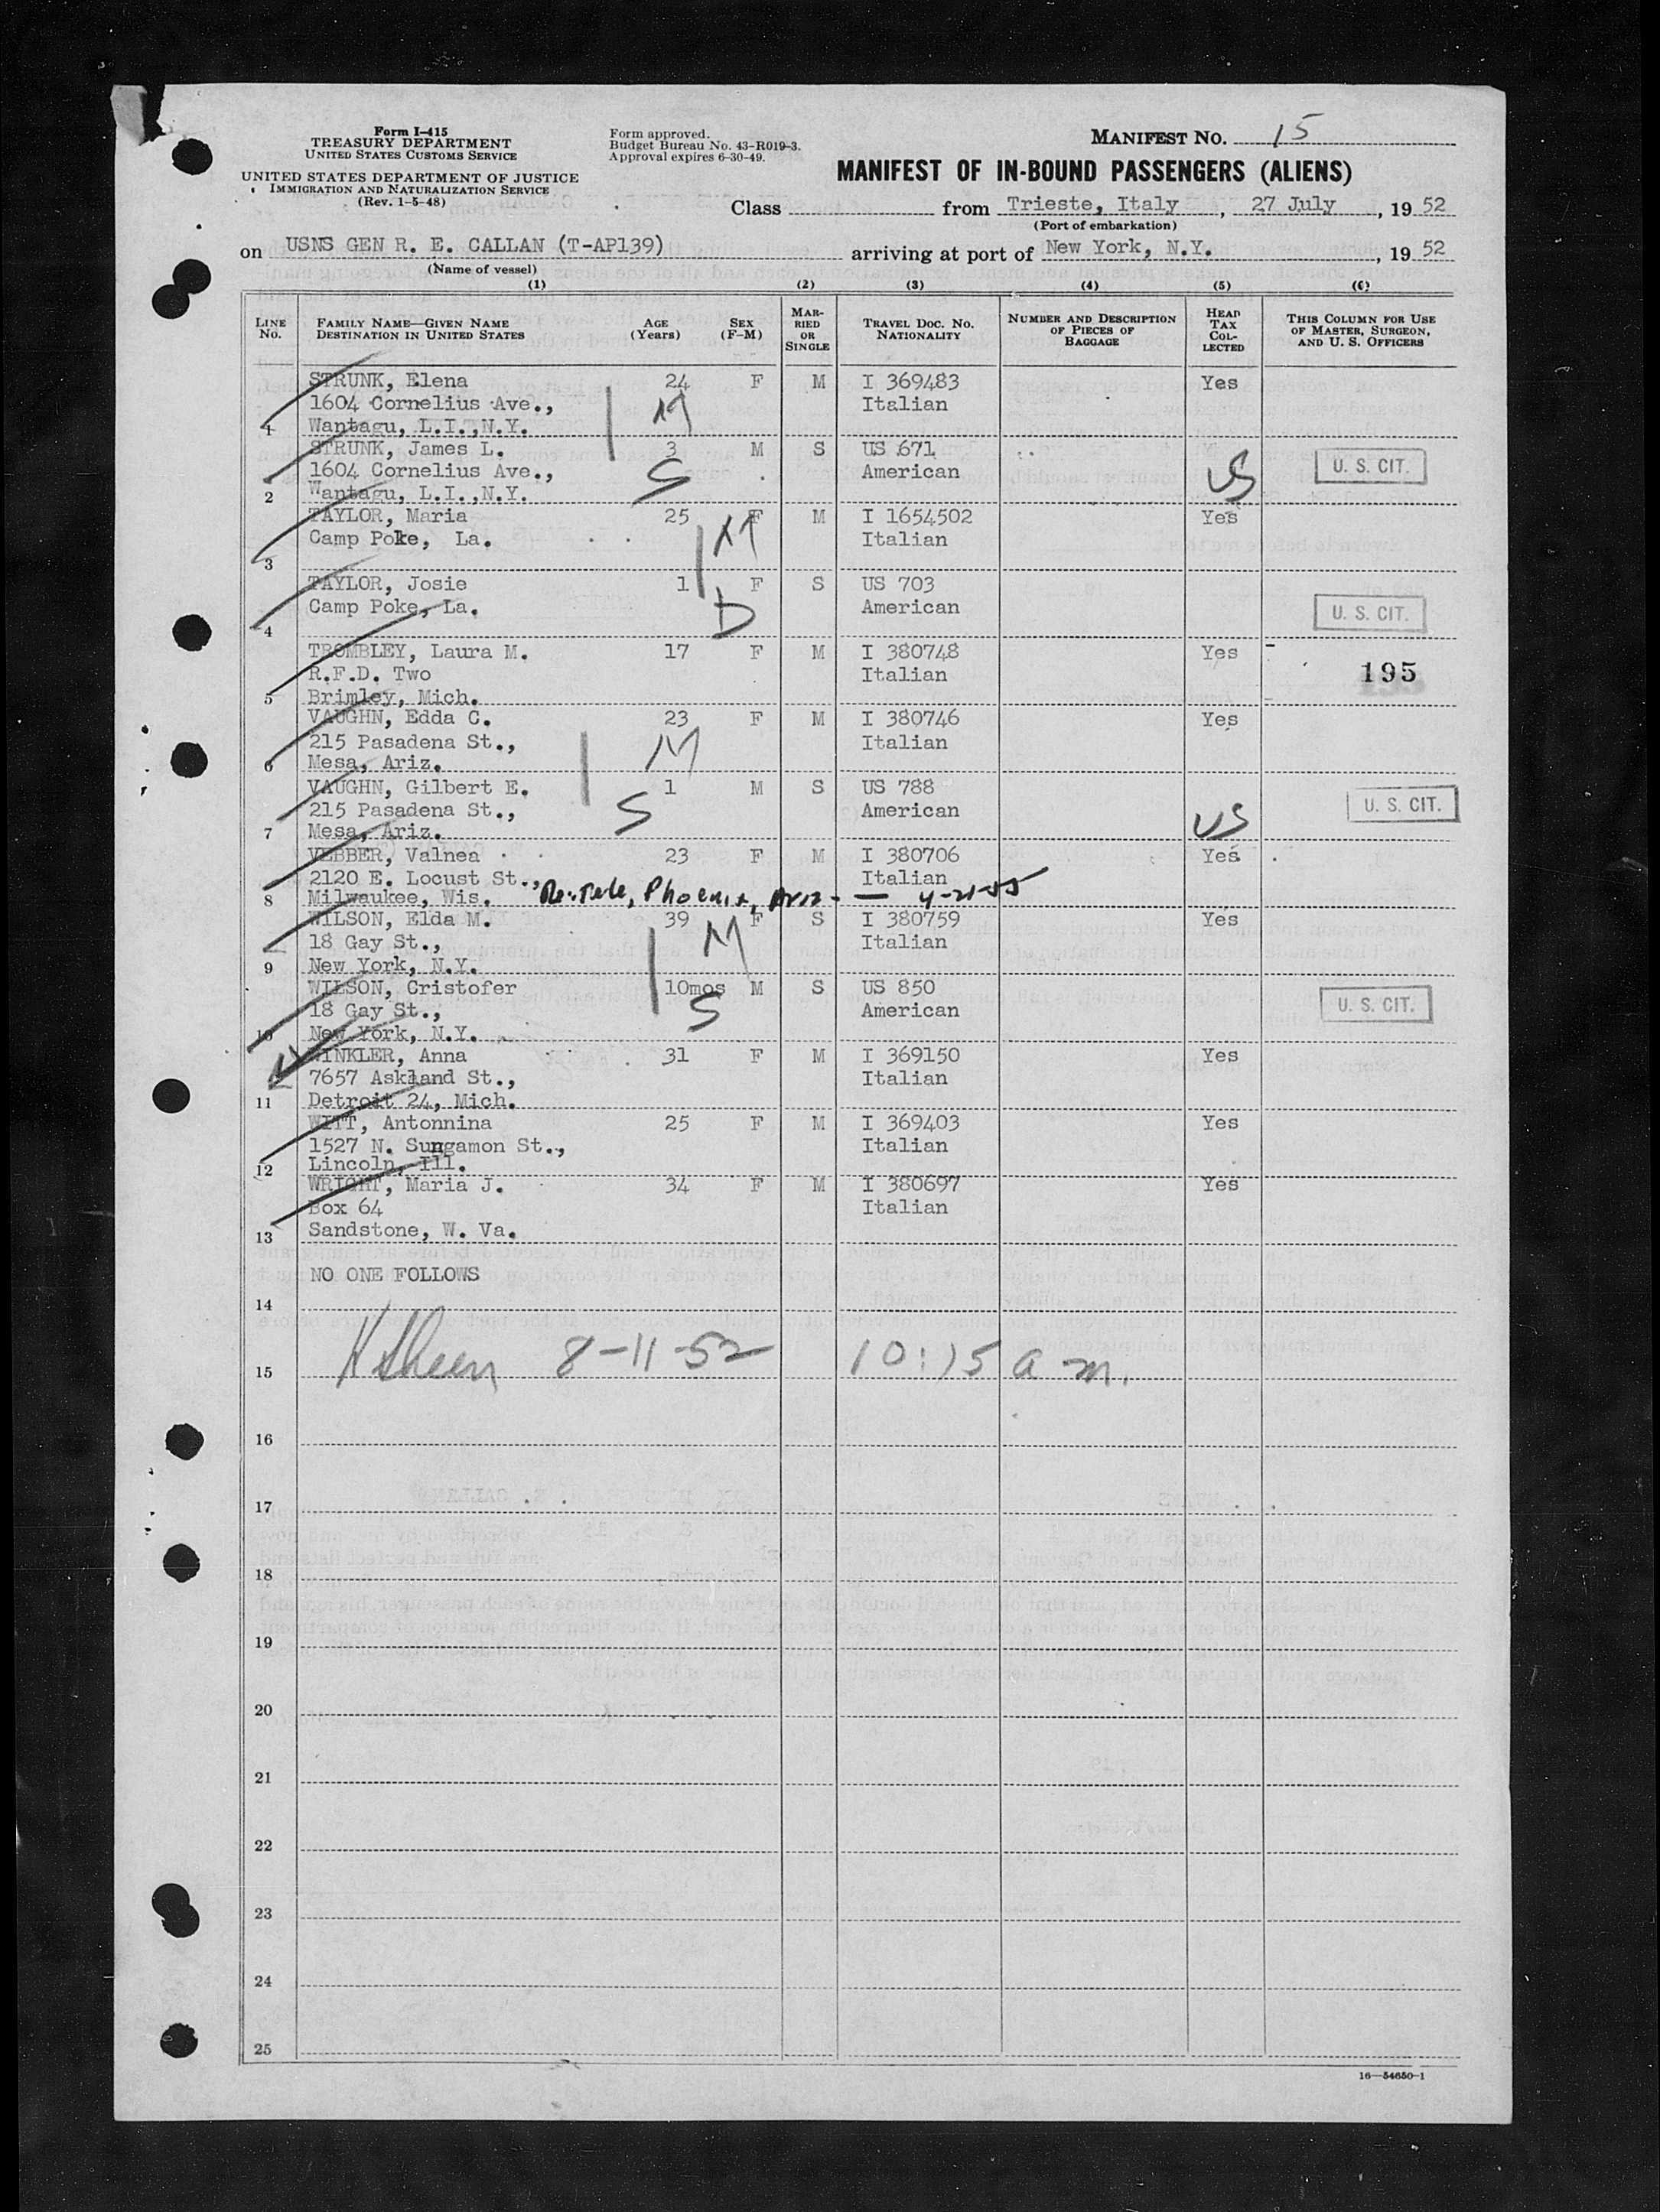 Form I-415
TREASURY DEPARTMENT
UNITED STATES CUSTOMS SERVICE
UNITED STATES DEPARTMENT OF JUSTICE
IMMIGRATION AND NATURALIZATION SERVICE
(Rev. 1-5-48)
Form approved.
Budget Bureau No. 43-R019-3.
Approval expires 6-30-49.
MANIFEST NO. 15
MANIFEST OF IN-BOUND PASSENGERS (ALIENS)
Class from Trieste, Italy, 27 July, 1952
(Port of embarkation)
on USNS GEN R. E. CALLAN (T-AP139) arriving at port of New York, N.Y., 1952
(Name of vessel)
(1) (2) (3) (4) (5) (6)
LINE No. FAMILY NAME—GIVEN NAME DESTINATION IN UNITED STATES AGE (Years) SEX (F-M) MARRIED OR SINGLE TRAVEL DOC. NO. NATIONALITY NUMBER AND DESCRIPTION OF PIECES OF BAGGAGE HEAD TAX COLLECTED THIS COLUMN FOR USE OF MASTER, SURGEON, AND U. S. OFFICERS
STRUNK, Elena 24 F M I 369483 Yes
1604 Cornelius Ave., M Italian
1 Wantagu, L.I.,N.Y.
STRUNK, James L. 3 M S US 671
1604 Cornelius Ave., S American US U. S. CIT.
2 Wantagu, L.I.,N.Y.
TAYLOR, Maria 25 F M I 1654502 Yes
Camp Poke, La. M Italian
3
TAYLOR, Josie 1 F S US 703
Camp Poke, La. D American U. S. CIT.
4
TROMBLEY, Laura M. 17 F M I 380748 Yes
R.F.D. Two Italian 195
5 Brimley, Mich.
VAUGHN, Edda C. 23 F M I 380746 Yes
215 Pasadena St., M Italian
6 Mesa, Ariz.
VAUGHN, Gilbert E. 1 M S US 788
215 Pasadena St., S American US U. S. CIT.
7 Mesa, Ariz.
VEBBER, Valnea 23 F M I 380706 Yes
2120 E. Locust St., Italian
8 Milwaukee, Wis. Phoenix, Ariz - — 4-21-55
WILSON, Elda M. 39 F S I 380759 Yes
18 Gay St., M Italian
9 New York, N.Y.
WILSON, Cristofer 10mos M S US 850
18 Gay St., S American U. S. CIT.
10 New York, N.Y.
WINKLER, Anna 31 F M I 369150 Yes
7657 Askland St., Italian
11 Detroit 24, Mich.
WITT, Antonnina 25 F M I 369403 Yes
1527 N. Sungamon St., Italian
12 Lincoln, Ill.
WRIGHT, Maria J. 34 F M I 380697 Yes
Box 64 Italian
13 Sandstone, W. Va.
NO ONE FOLLOWS
14
15 8-11-52 10:15 a m.
16
17
18
19
20
21
22
23
24
25
16—54650-1